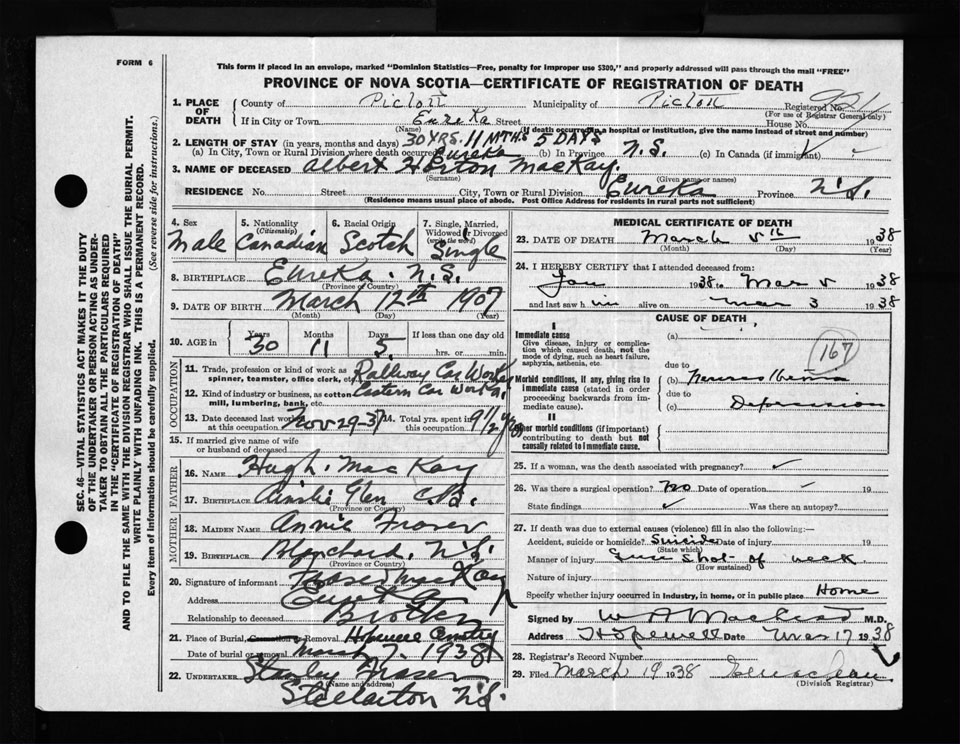 FORM 6
This form if placed in an envelope, marked "Dominion Statistics—Free, penalty for improper use $300," and properly addressed will pass through the mail "FREE"
PROVINCE OF NOVA SCOTIA—CERTIFICATE OF REGISTRATION OF DEATH
1. PLACE OF DEATH County of Pictou Municipality of Pictou Registered No.
(For use of Registrar General only)
If in City or Town Eureka Street House No.
(Name) (If death occurred in a hospital or institution, give the name instead of street and number)
2. LENGTH OF STAY (in years, months and days) 30 YRS. 11 MTHS. 5 DAYS
(a) In City, Town or Rural Division where death occurred Eureka (b) In Province N.S. (c) In Canada (if immigrant)
3. NAME OF DECEASED Albert Horton MacKay
(Surname) (Given name or names)
RESIDENCE No. Street City, Town or Rural Division Eureka Province N.S.
(Residence means usual place of abode. Post Office Address for residents in rural parts not sufficient)
4. Sex Male
5. Nationality (Citizenship) Canadian
6. Racial Origin Scotch
7. Single, Married, Widowed or Divorced (write the word) Single
8. BIRTHPLACE Eureka. N.S.
(Province or Country)
9. DATE OF BIRTH March 12th 1907
(Month) (Day) (Year)
10. AGE in Years 30 Months 11 Days 5 If less than one day old hrs. or min.
OCCUPATION
11. Trade, profession or kind of work as spinner, teamster, office clerk, etc. Railway Car Worker
12. Kind of industry or business, as cotton mill, lumbering, bank, etc. Eastern Car Works
13. Date deceased last worked at this occupation Nov 29-37
14. Total yrs. spent in this occupation 9 1/2 yrs
15. If married give name of wife or husband of deceased
FATHER
16. NAME Hugh MacKay
17. BIRTHPLACE Ainslie Glen C.B.
(Province or Country)
MOTHER
18. MAIDEN NAME Annie Fraser
19. BIRTHPLACE Blanchard, N.S.
(Province or Country)
20. Signature of informant MacKay
Address Eureka
Relationship to deceased Brother
21. Place of Burial, Cremation or Removal Hopewell Cemetery
Date of burial or removal March 7, 1938
22. UNDERTAKER Stanley Fraser
(Name and address)
Stellarton N.S.
MEDICAL CERTIFICATE OF DEATH
23. DATE OF DEATH March 5th 1938
(Month) (Day) (Year)
24. I HEREBY CERTIFY that I attended deceased from:
Jan 1938 to Mar 5 1938
and last saw him alive on Mar 3 1938
CAUSE OF DEATH
I
Immediate cause
Give disease, injury or complication which caused death, not the mode of dying, such as heart failure, asphyxia, asthenia, etc.
(a)
due to
167
Morbid conditions, if any, giving rise to immediate cause (stated in order proceeding backwards from immediate cause).
(b) Neurasthenia
due to
(c) Depression
II
Other morbid conditions (if important) contributing to death but not causally related to immediate cause.
25. If a woman, was the death associated with pregnancy?
26. Was there a surgical operation? no Date of operation 19
State findings Was there an autopsy?
27. If death was due to external causes (violence) fill in also the following:—
Accident, suicide or homicide? Suicide Date of injury 19
(State which)
Manner of injury Gun shot of neck
(How sustained)
Nature of injury
Specify whether injury occurred in industry, in home, or in public place Home
Signed by W A MacLeod M.D.
Address Hopewell Date Mar 17 1938
28. Registrar's Record Number
29. Filed March 19 1938
(Division Registrar)
SEC. 46—VITAL STATISTICS ACT MAKES IT THE DUTY
OF THE UNDERTAKER OR PERSON ACTING AS UNDER-
TAKER TO OBTAIN ALL THE PARTICULARS REQUIRED
IN THE "CERTIFICATE OF REGISTRATION OF DEATH"
AND TO FILE THE SAME WITH THE DIVISION REGISTRAR WHO SHALL ISSUE THE BURIAL PERMIT.
WRITE PLAINLY WITH UNFADING INK. THIS IS A PERMANENT RECORD.
Every item of information should be carefully supplied. (See reverse side for instructions.)